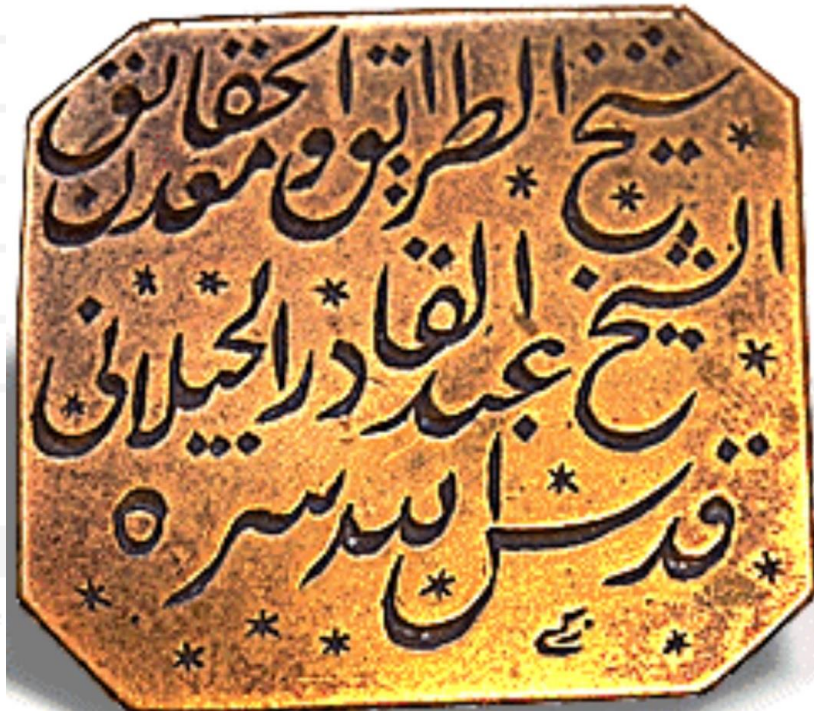 شيخ الطرايق و معدن الحقايق
الشيخ عبد القادر الجيلانى
قدس الله سره